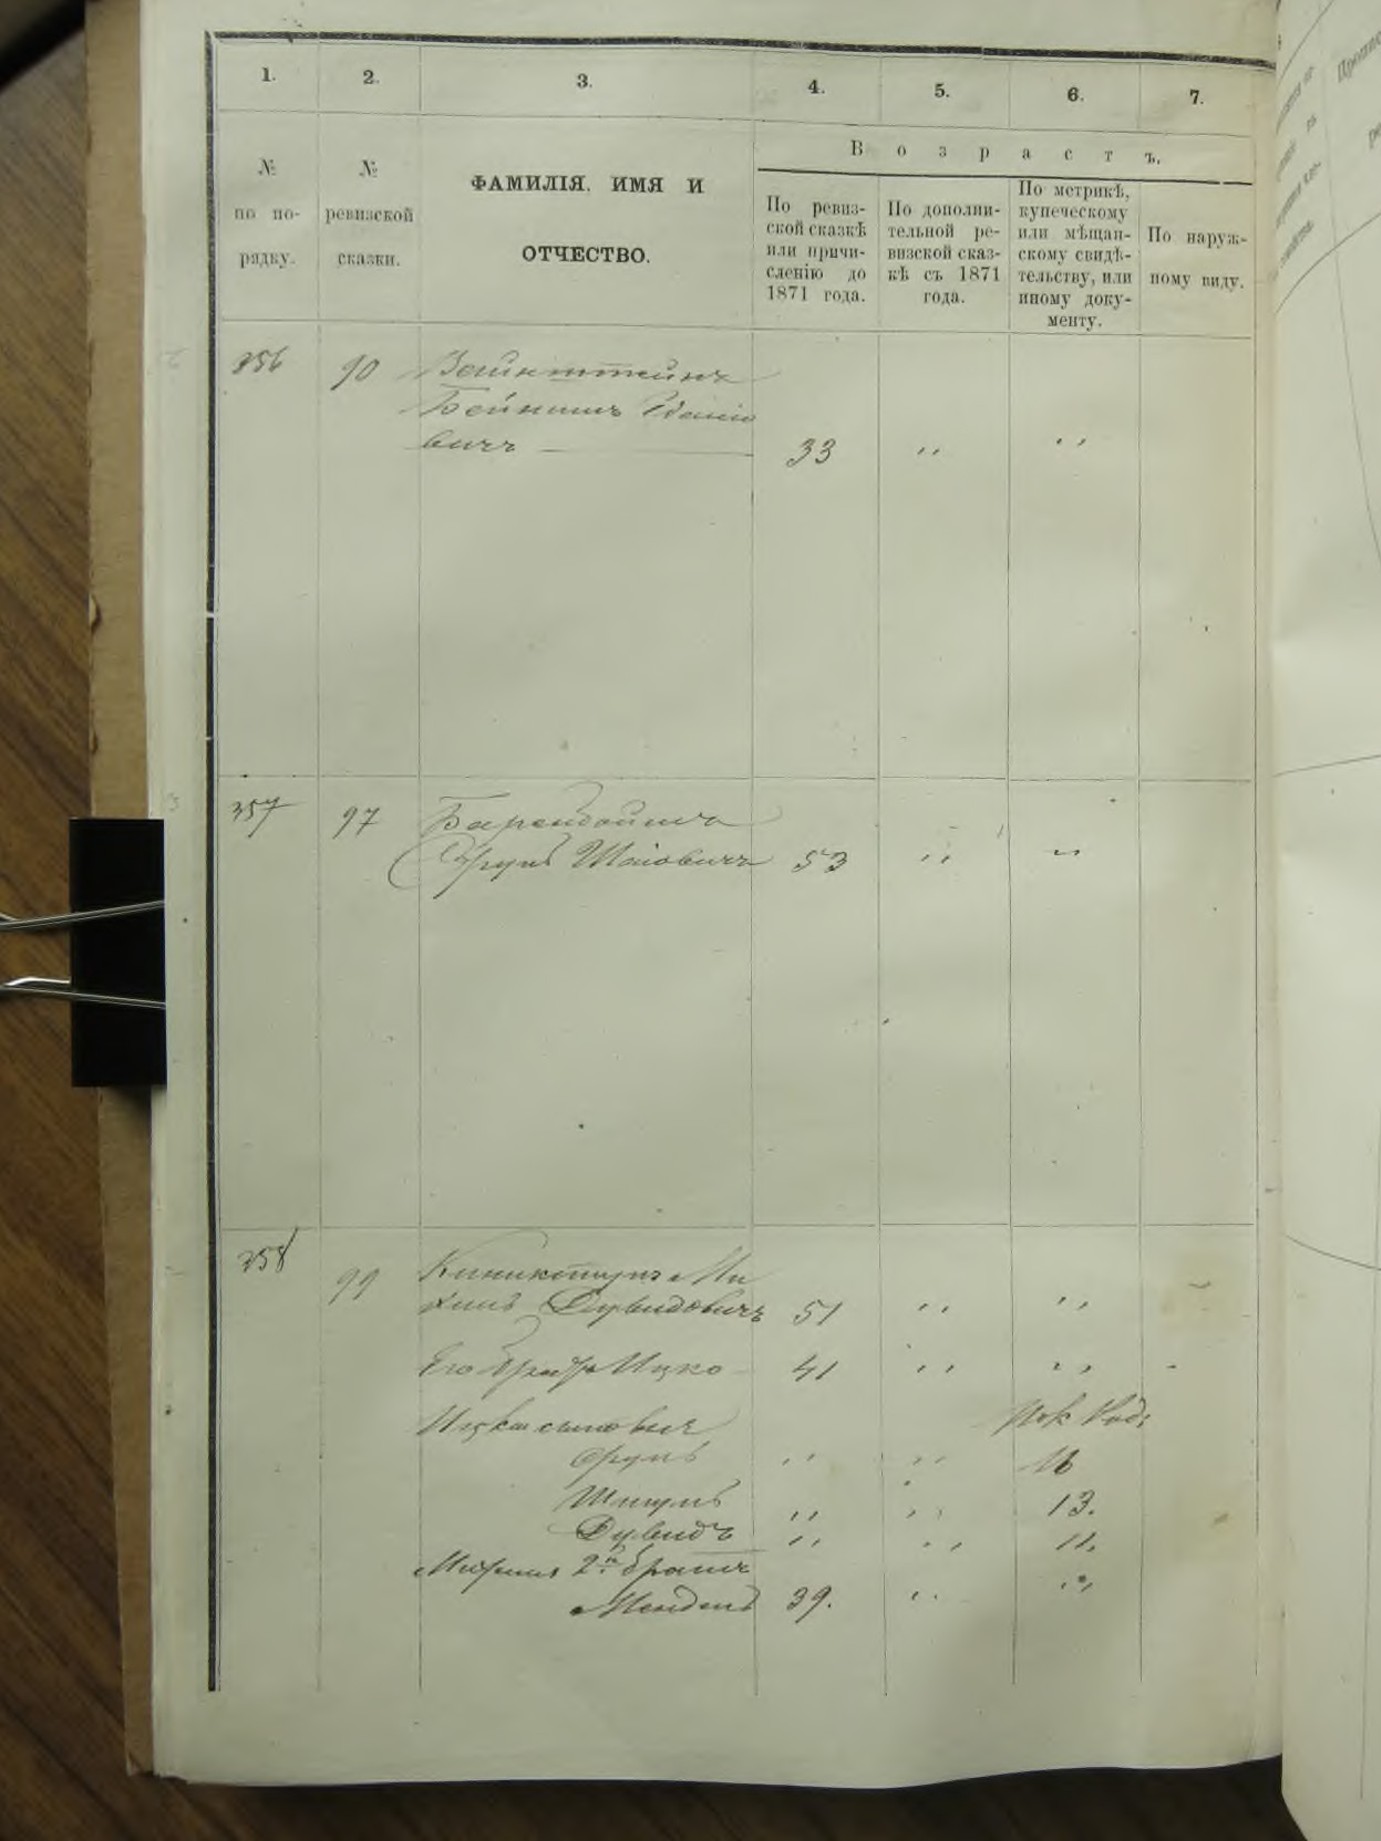 1. 2. 3. 4. 5. 6. 7.
№
по по-
рядку.
№
ревизской
сказки.
ФАМИЛІЯ, ИМЯ И
ОТЧЕСТВО.
Возрастъ.
По ревиз-
ской сказкѣ
или причи-
сленію до
1871 года.
По дополни-
тельной ре-
визской сказ-
кѣ съ 1871
года.
По метрикѣ,
купеческому
или мѣщан-
скому свидѣ-
тельству, или
иному доку-
менту.
По наруж-
ному виду.
356 90 Вайнштейнъ
Бейнишъ
вичъ 33 " "
357 97
Сруль Шаіовичъ 53 " "
358 99
Дувидовичъ 51 " "
Его братъ Ицко 41 " "
Ицка сыновья
Сруль " " 16
Шмуль " " 13.
Дувидъ " " 11.
2й братъ
Мендель 39. " "